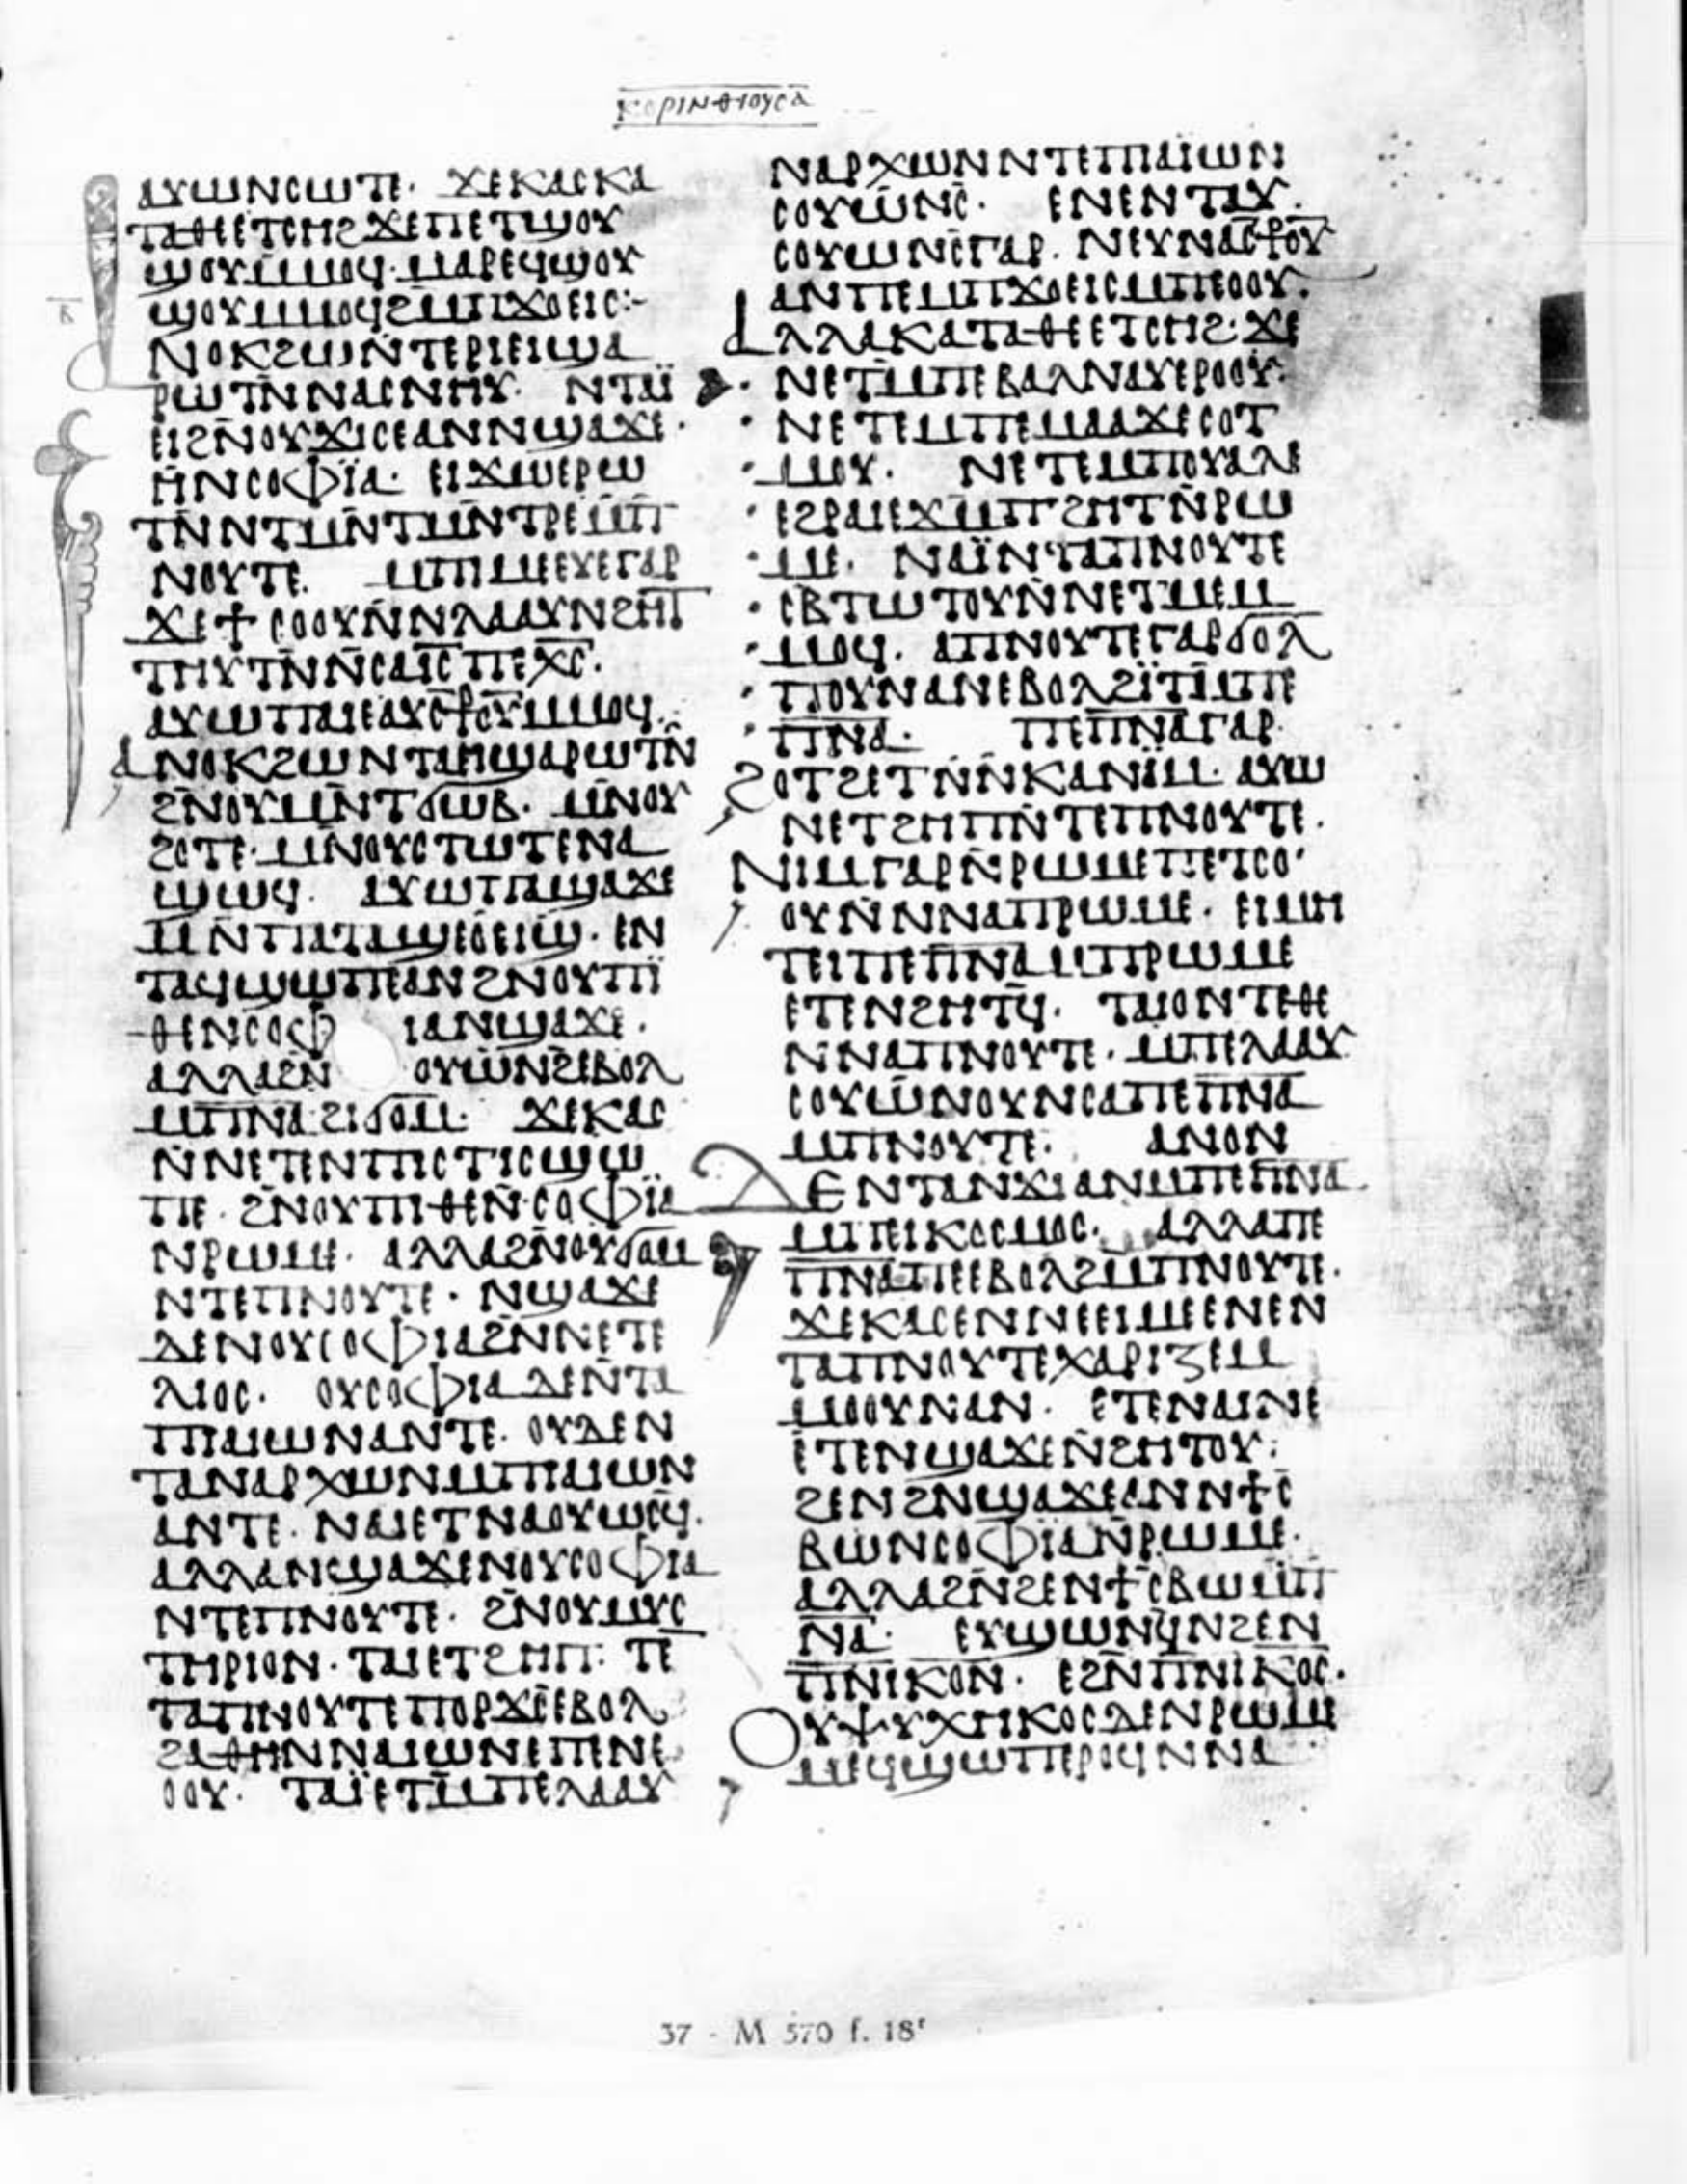 ⲕⲟⲣⲓⲛⲑⲓⲟⲩⲥⲁ
ⲁⲩⲱⲛⲥⲱⲧⲉ· ϫⲉⲕⲁⲥⲕⲁ
ⲧⲁⲑⲉⲉⲧⲥⲏϩϫⲉⲡⲉⲧϣⲟⲩ
ϣⲟⲩⲙⲙⲟϥ·ⲙⲁⲣⲉϥϣⲟⲩ
ϣⲟⲩⲙⲙⲟϥϩⲙⲡϫⲟⲉⲓⲥ:-
ⲃ̅
ⲁⲛⲟⲕϩⲱⲛ̄ⲧⲉⲣⲓⲉⲓϣⲁ
ⲣⲱⲧⲛ̄ⲛⲁⲥⲛⲏⲩ· ⲛⲧⲁⲓ̈
ⲉⲓϩⲛ̄ⲟⲩϫⲓⲥⲉⲁⲛⲛϣⲁϫⲉ·
ⲏⲛⲥⲟⲫⲓ̈ⲁ· ⲉⲓϫⲱⲉⲣⲱ
ⲧⲛ̄ⲛⲧⲙⲛ̄ⲧⲙⲛ̄ⲧⲣⲉⲙ̄ⲡ
ⲛⲟⲩⲧⲉ. ⲙⲡⲓⲙⲉⲉⲩⲉⲅⲁⲣ
ϫⲉϯⲥⲟⲟⲩⲛ̄ⲛⲗⲁⲁⲩⲛϩⲏⲧ
ⲧⲏⲩⲧⲛ̄ⲛ̄ⲥⲁⲓ̅ⲥ̅ ⲡⲉⲭ̅ⲥ̅.
ⲁⲩⲱⲡⲁⲓⲉⲁⲩⲥ̅ⳁⲟ̅ⲩ̅ⲙⲙⲟϥ.
ⲁⲛⲟⲕϩⲱⲛⲧⲁⲓ̈ϣⲁⲣⲱⲧⲛ̄
ϩⲛⲟⲩⲙⲛ̄ⲧϭⲱⲃ. ⲙⲛ̄ⲟⲩ
ϩⲟⲧⲉ·ⲙⲛ̄ⲟⲩⲥⲧⲱⲧⲉⲛⲁ
ϣⲱϥ. ⲁⲩⲱⲡⲁϣⲁϫⲉ
ⲙⲛ̄ⲡⲁⲧⲁϣⲉⲟⲉⲓϣ· ⲉⲛ
ⲧⲁϥϣⲱⲡⲉⲁⲛϩⲛⲟⲩⲡⲓ̈
ⲑⲉⲛⲥⲟⲫ ⲓⲁⲛϣⲁϫⲉ.
ⲁⲗⲗⲁϩⲛ̄ ⲟⲩⲱ̄ⲛϩⲉⲃⲟⲗ
ⲙⲡⲛⲁϩⲓϭⲟⲙ· ϫⲉⲕⲁⲥ
ⲛ̄ⲛⲉⲧⲉⲛⲡⲓⲥⲧⲓⲥϣⲱ
ⲡⲉ· ϩⲛⲟⲩⲡⲓⲑⲉⲛ̄·ⲥⲟⲫⲓ̈ⲁ
ⲛⲣⲱⲙⲉ. ⲁⲗⲗⲁϩⲛⲟⲩϭⲟⲙ
ⲛⲧⲉⲡⲛⲟⲩⲧⲉ· ⲛϣⲁϫⲉ
ⲇⲉⲛⲟⲩⲥⲟⲫⲓⲁϩⲛ̄ⲛⲉⲧⲉ
ⲗⲓⲟⲥ· ⲟⲩⲥⲟⲫⲓⲁⲇⲉⲛ̄ⲧⲁ
ⲡⲁⲓⲱⲛⲁⲛⲧⲉ· ⲟⲩⲇⲉⲛ
ⲧⲁⲛⲁⲣⲭⲱⲛⲙⲡⲁⲓⲱⲛ
ⲁⲛⲧⲉ· ⲛⲁⲓⲉⲧⲛⲁⲟⲩⲱⲥϥ̄.
ⲁⲗⲗⲁⲛϣⲁϫⲉⲛⲟⲩⲥⲟⲫⲓⲁ
ⲛⲧⲉⲡⲛⲟⲩⲧⲉ· ϩⲛⲟⲩⲙⲩⲥ
ⲧⲏⲣⲓⲟⲛ· ⲧⲁⲓⲉⲧϩⲏⲡ: ⲧⲉ
ⲧⲁⲡⲛⲟⲩⲧⲉⲡⲟⲣϫⲥ̄ⲉⲃⲟⲗ
ϩⲁⲑⲏⲛⲛⲁⲓⲱⲛⲉⲡⲉⲛⲉ
ⲟⲟⲩ· ⲧⲁⲓ̈ⲉⲧⲙ̄ⲡⲉⲗⲁⲁⲩ
ⲛⲁⲣⲭⲱⲛⲛⲧⲉⲡⲁⲓ̈ⲱⲛ
ⲥⲟⲩⲱ̄ⲛⲥ̄· ⲉⲛⲉⲛⲧⲁⲩ.
ⲥⲟⲩⲱⲛⲥ̄ⲅⲁⲣ. ⲛⲉⲩⲛⲁⲥ̅ⳁⲟ̅ⲩ̅
ⲁⲛⲡⲉⲙⲡϫⲟⲉⲓⲥⲙⲡⲉⲟⲟⲩ.
ⲁⲗⲗⲁⲕⲁⲧⲁⲑⲉⲉⲧⲥⲏϩ·ϫⲉ
ⲛⲉⲧⲙ̄ⲡⲉⲃⲁⲗⲛⲁⲩⲉⲣⲟⲟⲩ·
ⲛⲉⲧⲉⲙⲡⲉⲙⲁⲁϫⲉⲥⲟⲧ
ⲙⲟⲩ. ⲛⲉⲧⲉⲙⲡⲟⲩⲁⲗⲉ
ⲉϩⲣⲁⲓⲉϫⲙ̄ⲡϩⲏⲧⲛ̄ⲣⲱ
ⲙⲉ. ⲛⲁⲓ̈ⲛⲧⲁⲡⲛⲟⲩⲧⲉ
ⲥⲃⲧⲱⲧⲟⲩⲛ̄ⲛⲉⲧⲙⲉⲙ
ⲙⲟϥ. ⲁⲡⲛⲟⲩⲧⲉⲅⲁⲣϭⲟⲗ
ⲡⲟⲩⲛⲁⲛⲉⲃⲟⲗϩⲓ̈ⲧⲙ̄ⲡⲉ
ⲡ̅ⲛ̅ⲁ̅· ⲡⲉⲡ̅ⲛ̅ⲁ̅ⲅⲁⲣ.
ϩⲟⲧϩⲉⲧⲛ̄ⲛ̄ⲕⲁⲛⲓ̈ⲙ· ⲁⲩⲱ
ⲛⲉⲧϩⲏⲡⲛ̄ⲧⲉⲡⲛⲟⲩⲧⲉ.
ⲛⲓⲙⲅⲁⲣⲛ̄ⲣⲱⲙⲉⲡⲉⲧⲥⲟ·
ⲟⲩⲛ̄ⲛⲛⲁⲡⲣⲱⲙⲉ· ⲉⲓⲙⲏ
ⲧⲉⲓⲡⲉⲡ̅ⲛ̅ⲁ̅ⲙⲡⲣⲱⲙⲉ
ⲉⲧⲉⲛϩⲏⲧϥ̄· ⲧⲁⲓⲟⲛⲧⲉⲑⲉ
ⲛ̄ⲛⲁⲡⲛⲟⲩⲧⲉ· ⲙⲡⲉⲗⲁⲁⲩ
ⲥⲟⲩⲱ̄ⲛⲟⲩⲛⲥⲁⲡⲉⲡ̅ⲛ̅ⲁ̅
ⲙⲡⲛⲟⲩⲧⲉ· ⲁⲛⲟⲛ
ⲇⲉⲛⲧⲁⲛϫⲓⲁⲛⲙⲡⲉⲡ̅ⲛ̅ⲁ̅
ⲙⲡⲉⲓⲕⲟⲥⲙⲟⲥ· ⲁⲗⲗⲁⲡⲉ
ⲡ̅ⲛ̅ⲁ̅ⲡⲉⲉⲃⲟⲗϩⲙⲡⲛⲟⲩⲧⲉ.
ϫⲉⲕⲁⲥⲉⲛⲛⲉⲉⲓⲙⲉⲉⲛⲉⲛ
ⲧⲁⲡⲛⲟⲩⲧⲉⲭⲁⲣⲓⲍⲉⲙ
ⲙⲟⲟⲩⲛⲁⲛ· ⲉⲧⲉⲛⲁⲓⲛⲉ
ⲉⲧⲉⲛϣⲁϫⲉⲛ̄ϩⲏⲧⲟⲩ·
ϩⲉⲛϩⲛϣⲁϫⲉⲁⲛⲛϯⲥ
ⲃⲱⲛⲥⲟⲫⲓ̈ⲁⲛ̄ⲣⲱⲙⲉ·
ⲁⲗⲗⲁϩⲛ̄ϩⲉⲛϯⲥⲃⲱⲙ̄ⲡ̅
ⲛ̅ⲁ̅· ⲉⲩϣⲱⲛϥ̄ⲛϩⲉⲛ
ⲡ̅ⲛ̅ⲓⲕⲟⲛ· ⲉϩⲛ̄ⲡ̅ⲛ̅ⲓⲕⲟⲥ.
ⲟⲩⲯⲩⲭⲏⲕⲟⲥⲇⲉⲛⲣⲱⲙⲉ
ⲙⲉϥϣⲱⲡⲉⲣⲟϥⲛⲛⲁ
37 - M 570 f. 18ʳ